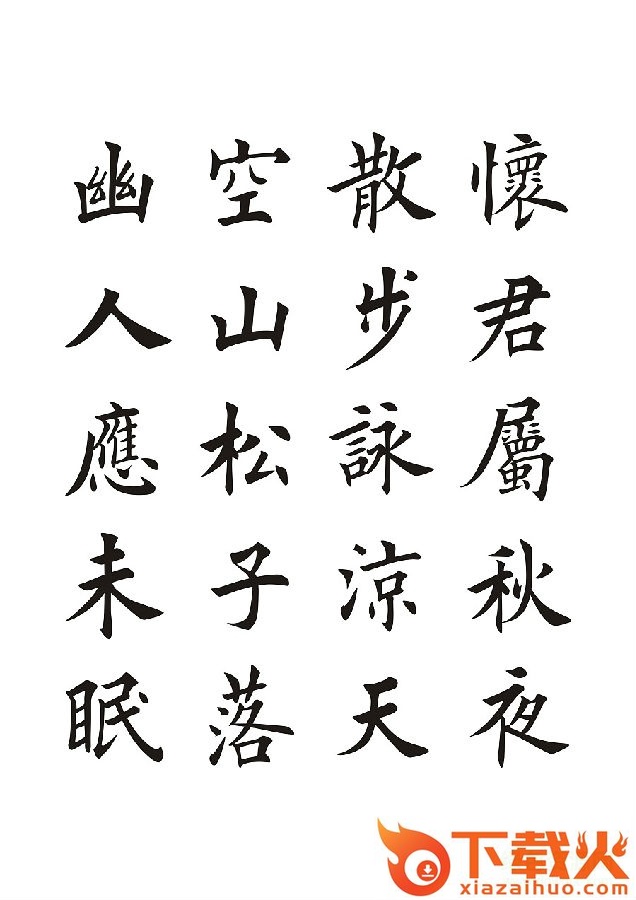 懷君屬秋夜
散步詠涼天
空山松子落
幽人應未眠
下载火
xiazaihuo.com